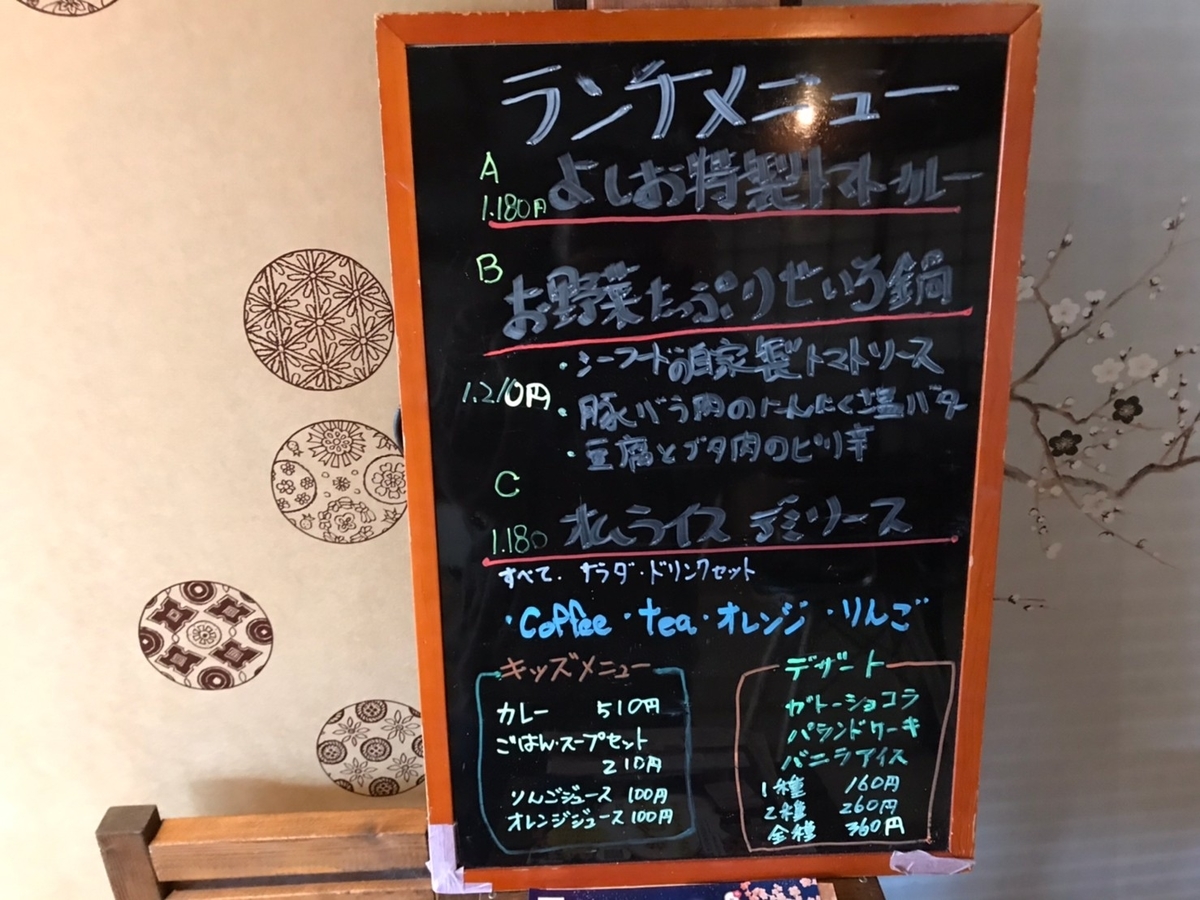 ランチメニュー
A
1.180円 よしお特製トマトカレー
B
お野菜たっぷりせいろ鍋
・シーフードの自家製トマトソース
1.210円
・豚バラ肉のにんにく塩バター
・豆腐とブタ肉のピリ辛
C
1.180 オムライス デミソース
すべて・サラダ・ドリンクセット
・Coffee・tea・オレンジ・りんご
キッズメニュー
カレー 510円
ごはん・スープセット
210円
りんごジュース 100円
オレンジジュース 100円
デザート
ガトーショコラ
パウンドケーキ
バニラアイス
1種 160円
2種 260円
全種 360円